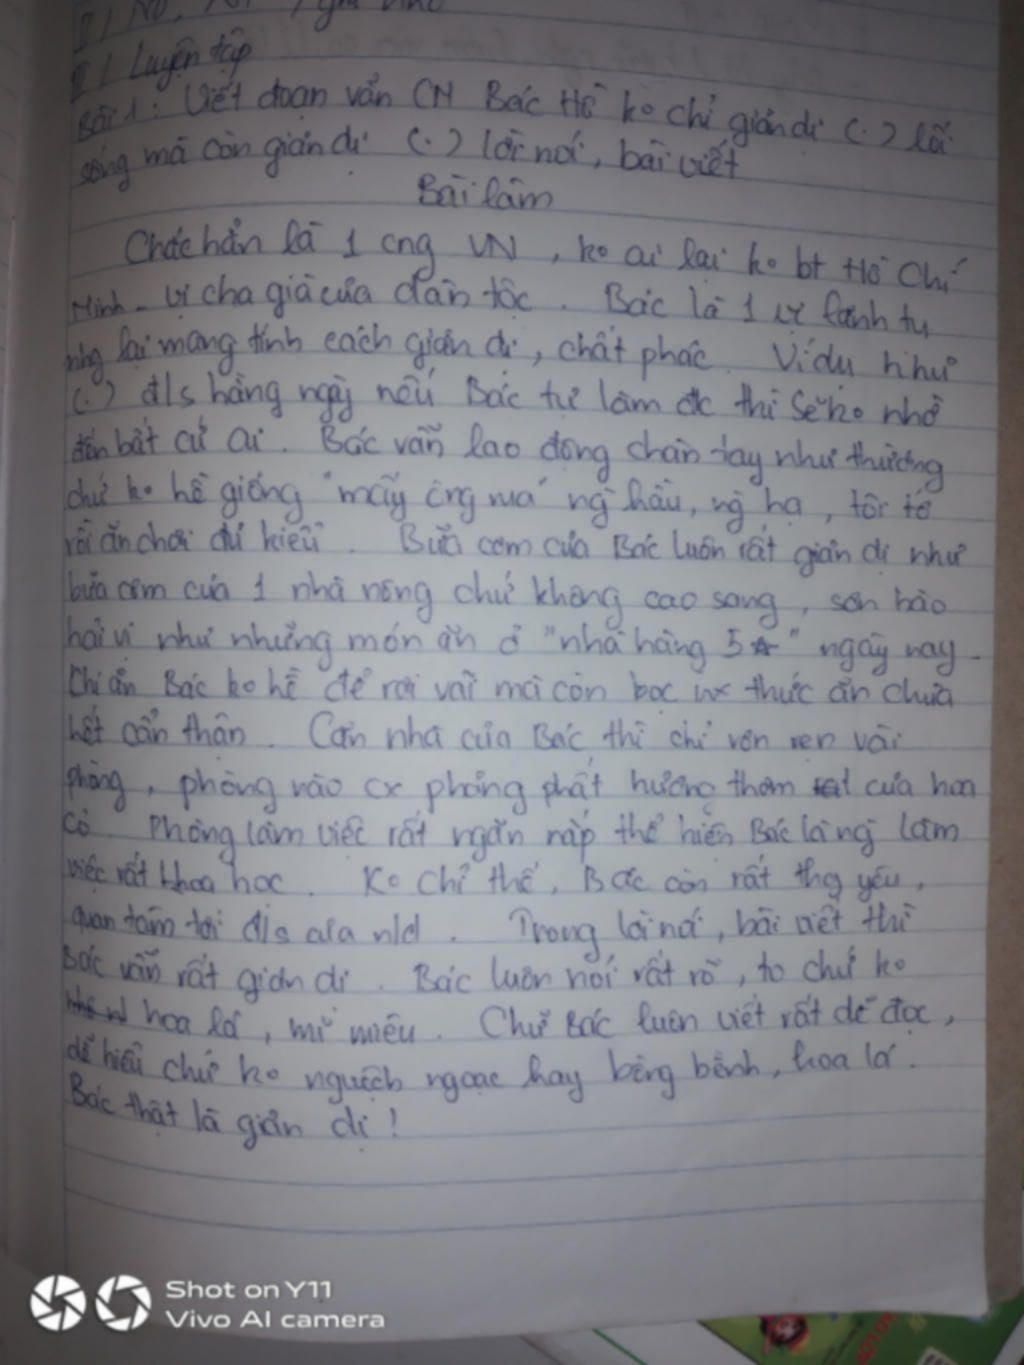 II / Luyện tập
Bài 1: Viết đoạn văn CM Bác Hồ ko chỉ giản dị (.) lối
sống mà còn giản dị (.) lời nói, bài viết
Bài làm
Chắc hẳn là 1 cng VN, ko ai lại ko bt Hồ Chí
Minh - vị cha già của dân tộc. Bác là 1 vị lãnh tụ
nhg lại mang tính cách giản dị, chất phác. Ví dụ như
(.) đ/s hằng ngày nếu Bác tự làm đc thì sẽ ko nhờ
đến bất cứ ai. Bác vẫn lao động chân tay như thường
chứ ko hề giống "mấy ông vua" ng hầu, ng hạ, tôi tớ
rồi ăn chơi đủ kiểu. Bữa cơm của Bác luôn rất giản dị như
bữa cơm của 1 nhà nông chứ không cao sang, sơn hào
hải vị như những món ăn ở "nhà hàng 5☆" ngày nay.
Khi ăn Bác ko hề để rơi vãi mà còn bọc thức ăn chưa
hết cẩn thận. Căn nhà của Bác thì chỉ vỏn vẹn vài
phòng, phòng nào cx phảng phất hương thơm của hoa
cỏ. Phòng làm việc rất ngăn nắp thể hiện Bác là ng làm
việc rất khoa học. Ko chỉ thế, Bác còn rất thg yêu,
quan tâm tới đ/s của nlđ. Trong lời nói, bài viết thì
Bác vẫn rất giản dị. Bác luôn nói rất rõ, to chứ ko
hoa lá, mĩ miều. Chữ Bác luôn viết rất dễ đọc,
dễ hiểu chứ ko nguệch ngoạc hay bồng bềnh, hoa lá.
Bác thật là giản dị!
Shot on Y11
Vivo AI camera